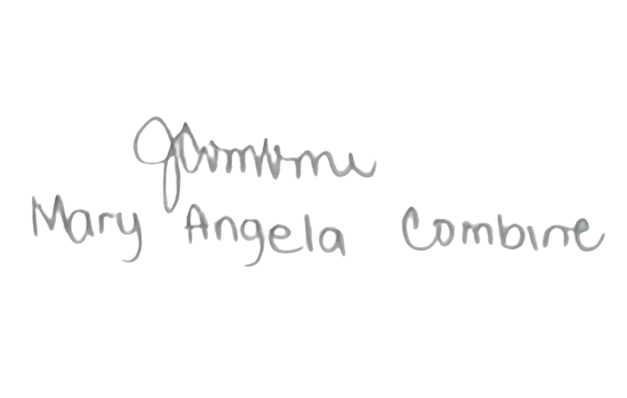 Mary Angela Combine